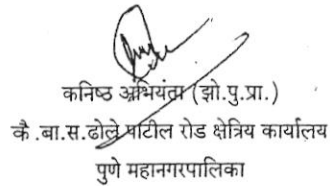 कनिष्ठ अभियंता (झो.पु.प्रा.)
कै .बा.स.ढोले पाटील रोड क्षेत्रिय कार्यालय
पुणे महानगरपालिका